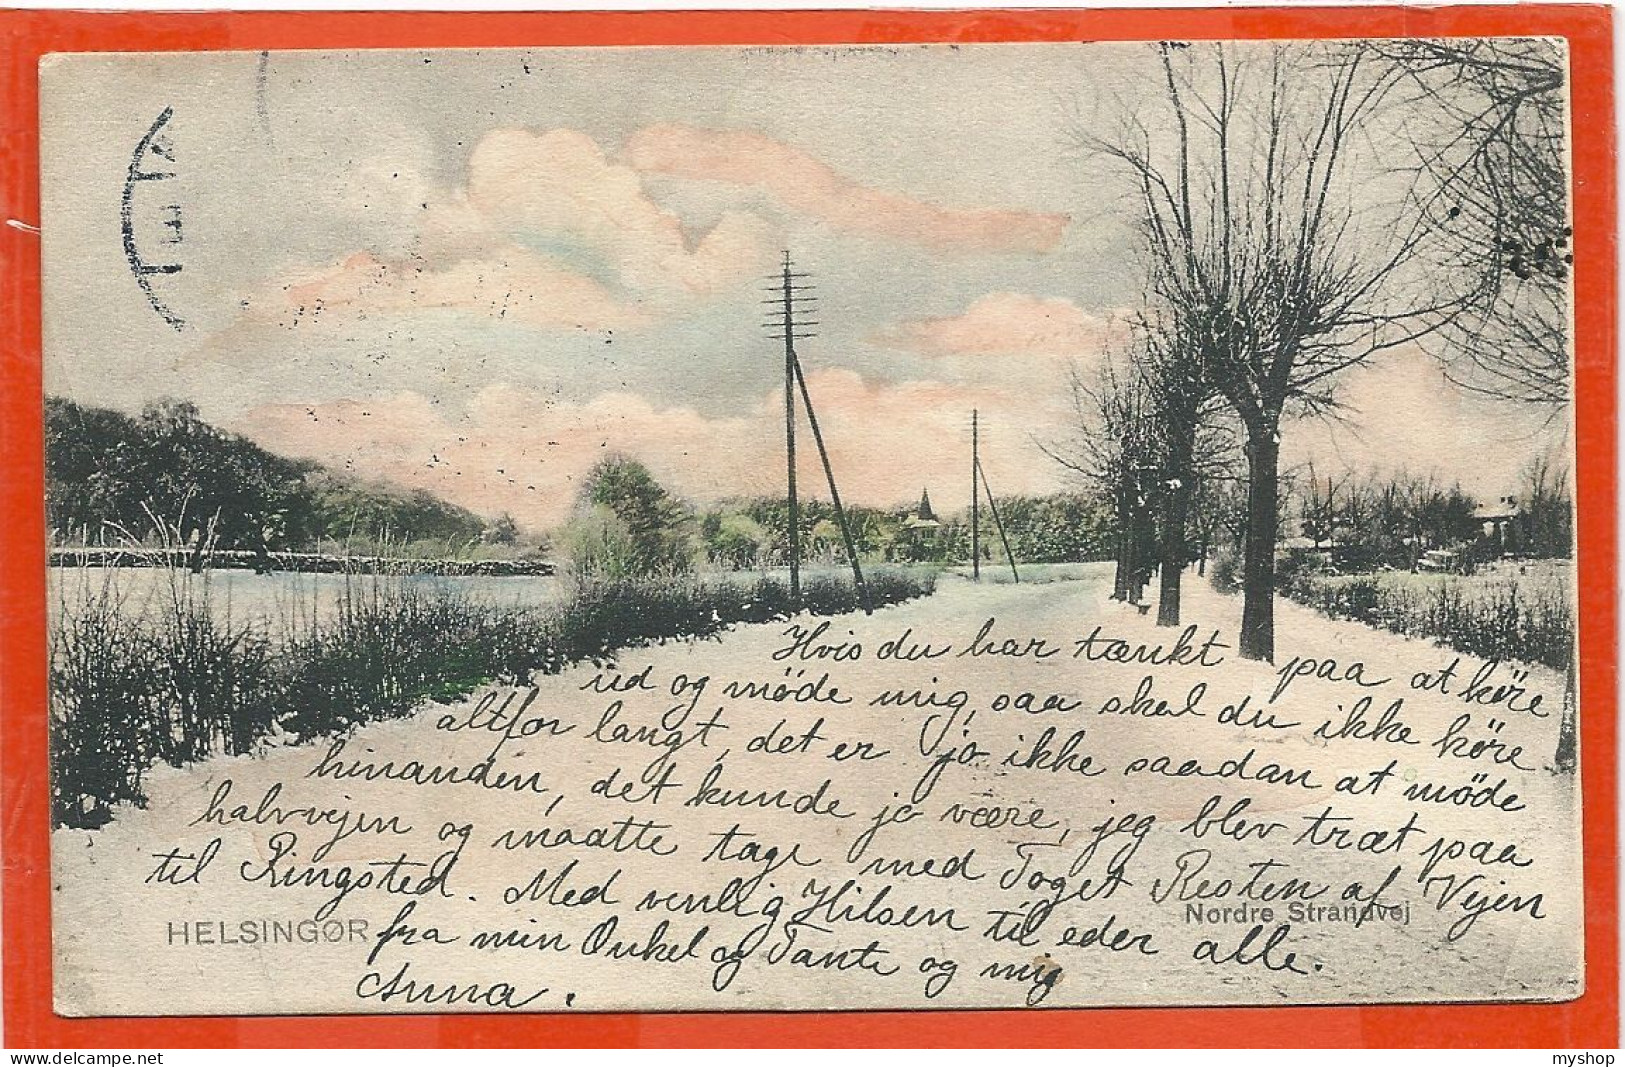 Hvis du har tænkt paa at köre
ud og möde mig, saa skal du ikke köre
altfor langt, det er jo ikke saadan at möde
hinanden, det kunde jo være, jeg blev træt paa
halvvejen og maatte tage med Toget Resten af Vejen
til Ringsted. Med venlig Hilsen til eder alle.
fra min Onkel og Tante og mig
Anna.
HELSINGØR
Nordre Strandvej
myshop
delcampe.net